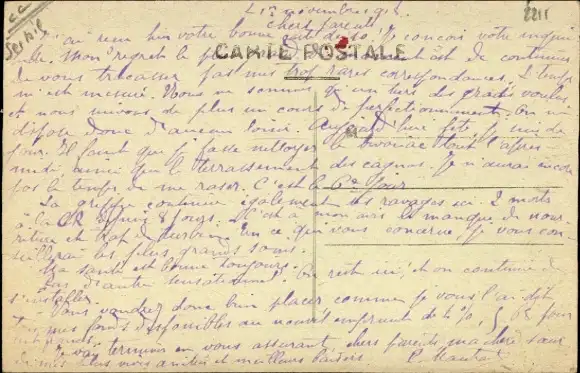 2211
1er novembre 1918
Chers parents
J'ai reçu hier votre bonne. Je conçois votre inquié-
tude. Mon regret le
CARTE POSTALE
est de continuer
de vous tracasser par mes trop rares correspondances. Le temps
m'est mesuré. Nous ne sommes qu'un tiers des gradés voulus
et nous suivons de plus un cours de perfectionnement. On ne
dispose donc d'aucun loisir. Aujourd'hui fête, midi
jour. Il faut que je fasse nettoyer le bivouac tout l'après
midi, ainsi que le terrassement des cagnas. Je n'aurai encore
pas le temps de me raser. C'est le 6e jour
La grippe continue également ses ravages ici. 2 morts
à la CR depuis 8 jours. C'est à mon avis le manque de nour-
riture et. En ce qui vous concerne, je vous con-
seillerai les plus grands soins.
Ma santé est bonne toujours.
Pas d'autre sensationnel. On reste ici, et on continue de
s'installer.
Vous voudrez donc bien placer comme je vous l'ai dit
tous mes fonds disponibles au nouvel emprunt de la
Je vais terminer en vous assurant, chers parents, ma chère sœur
de mes plus vives amitiés et meilleurs baisers